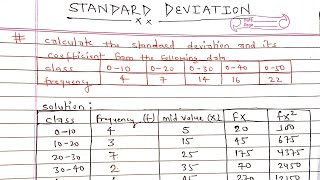 STANDARD DEVIATION
# calculate the standard deviation and its
coefficient from the following data
class 0-10 0-20 0-30 0-40 0-50
frequency 4 7 14 16 22
solution:
class Frequency (f) mid value (x) fx fx²
0-10 4 5 20 100
10-20 3 15 45 675
20-30 7 25 175 4375
30-40 2 35 70 2450